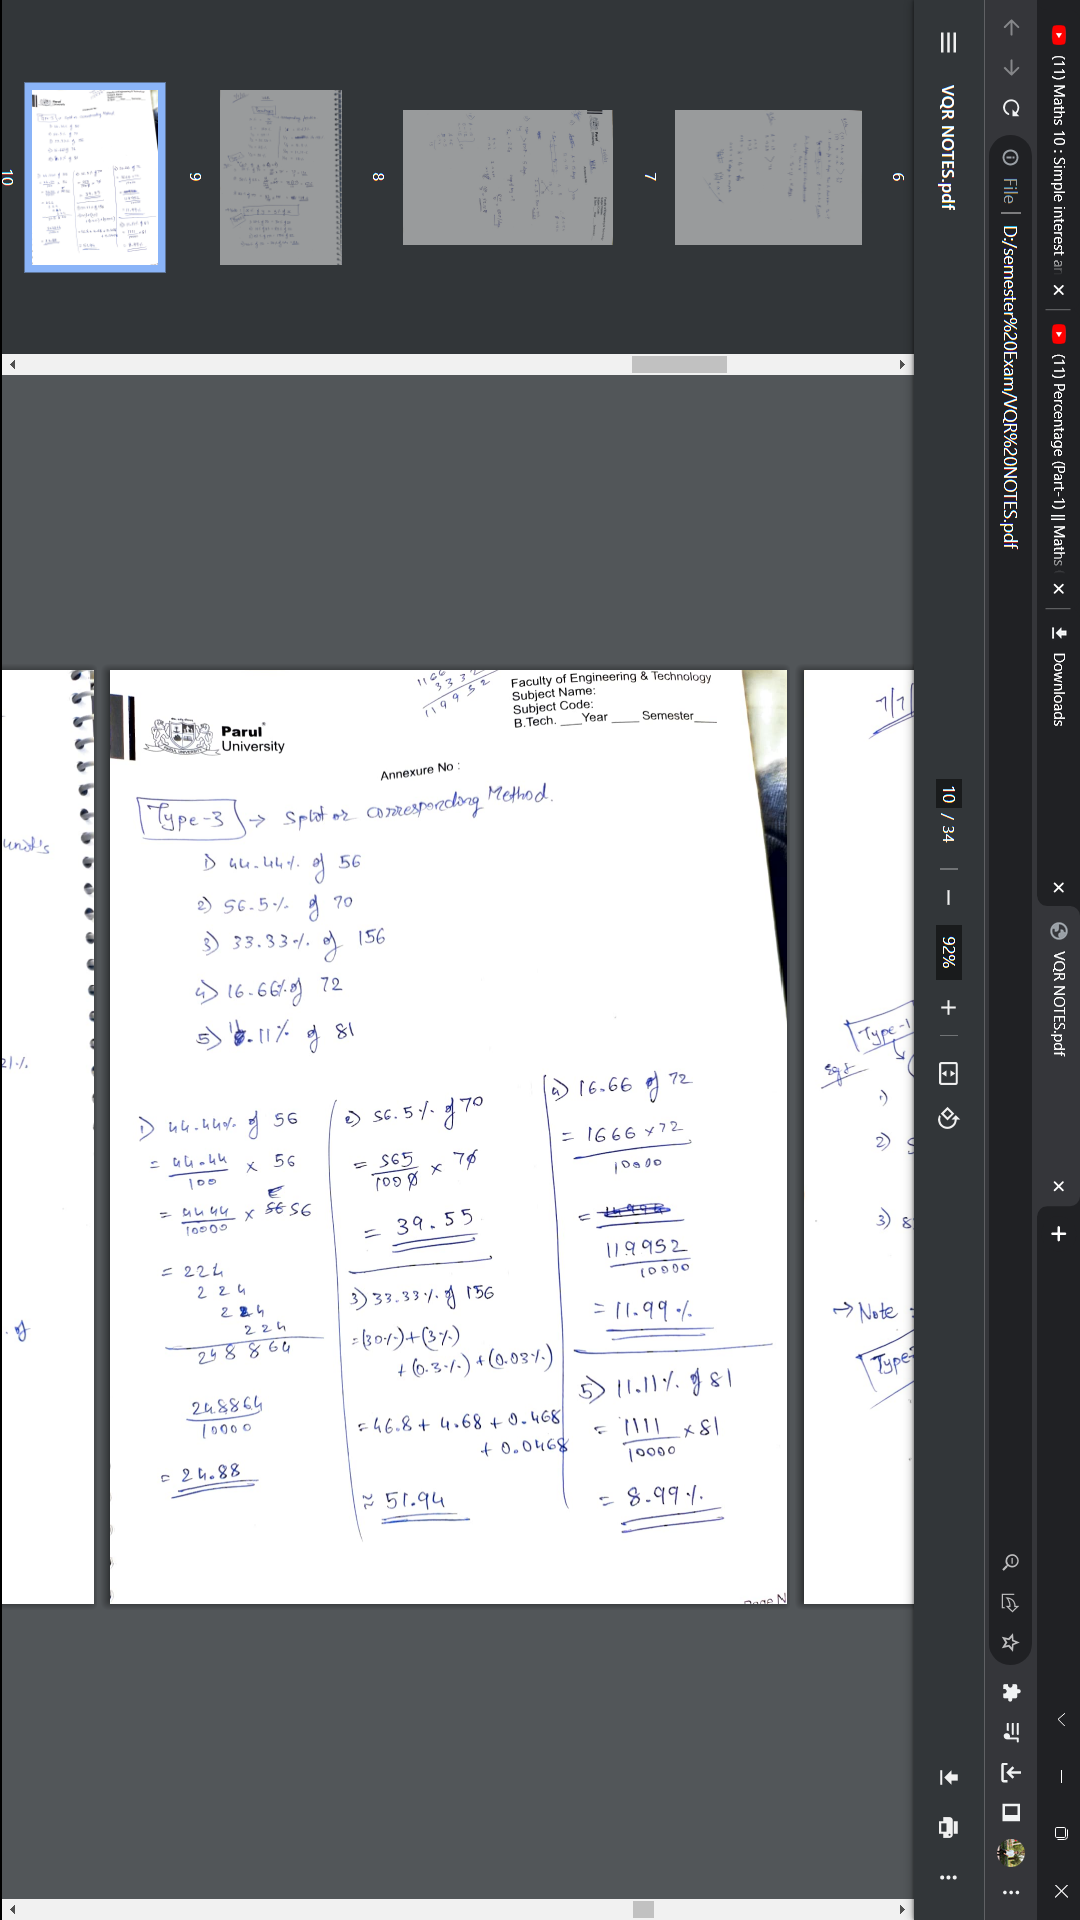 (11) Maths 10 : Simple interest ar
(11) Percentage (Part-1) || Maths
Downloads
VQR NOTES.pdf
File | D:/semester%20Exam/VQR%20NOTES.pdf
VQR NOTES.pdf
10 / 34
92%
6
7
8
9
10
3332
119952
Parul
University
Faculty of Engineering & Technology
Subject Name:
Subject Code:
B.Tech. ___Year ____ Semester____
Annexure No :
Type-3 → Split or corresponding Method.
1) 44.44% of 56
2) 56.5% of 70
3) 33.33% of 156
4) 16.66% of 72
5) 11.11% of 81
1) 44.44% of 56
= 44.44/100 × 56
= 4444/10000 × 56
= 224
224
224
224
248864
248864/10000
= 24.88
2) 56.5% of 70
= 565/1000 × 70
= 39.55
3) 33.33% of 156
= (30%) + (3%)
+ (0.3%) + (0.03%)
= 46.8 + 4.68 + 0.468
+ 0.0468
≈ 51.94
4) 16.66 of 72
= 1666 × 72/10000
=
119952/10000
= 11.99%
5) 11.11% of 81
= 1111/10000 × 81
= 8.99%
unit's
21%
. of
7/7/
Type-1
1)
2) 5
3) 8
→ Note :
Type-